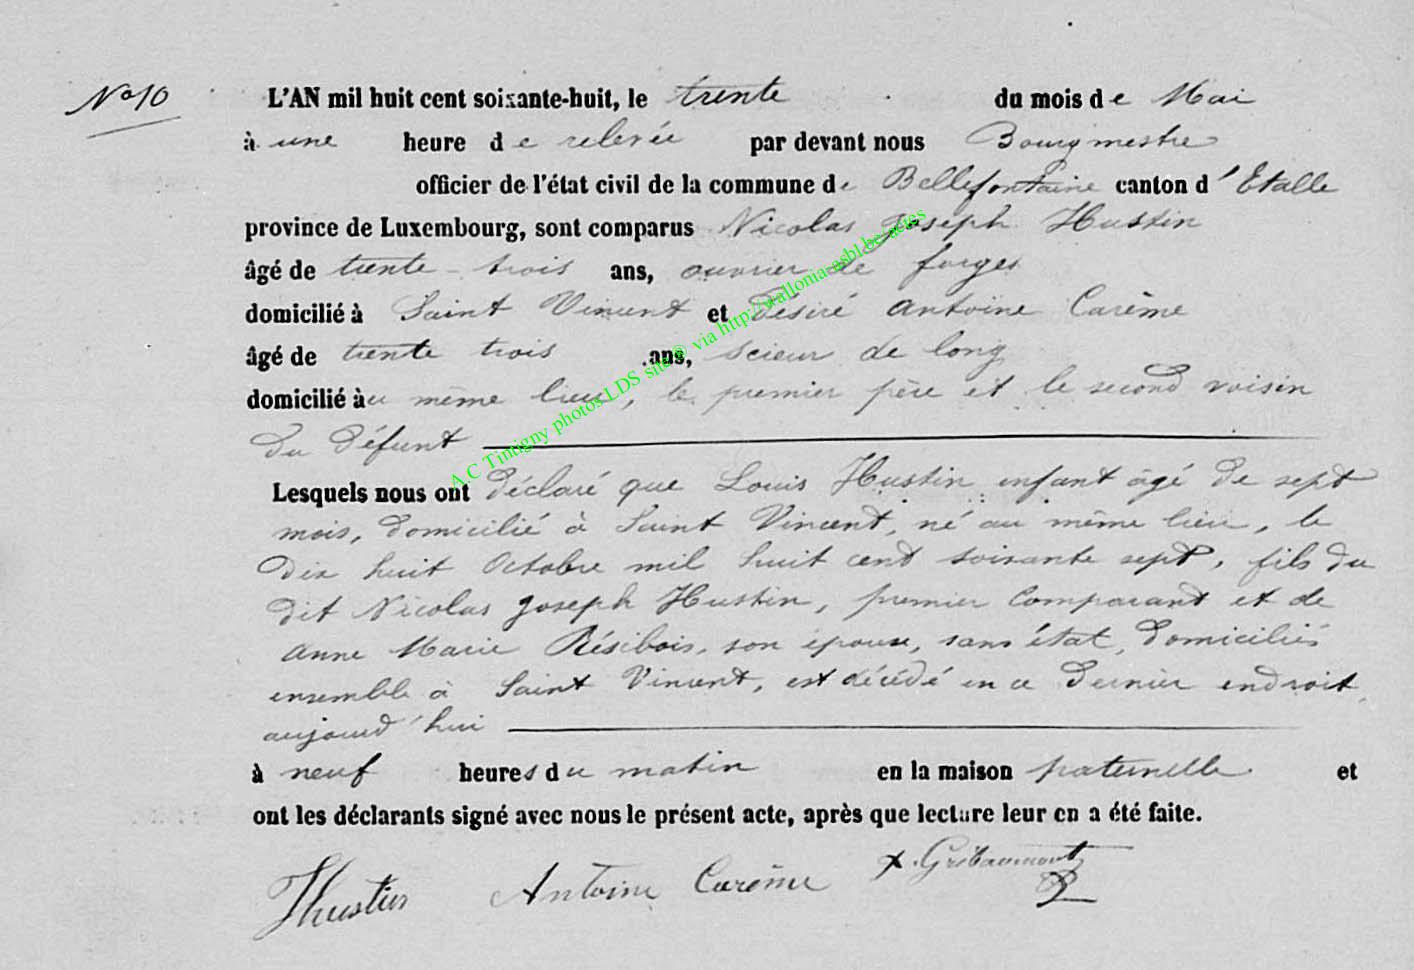 No 10
L'AN mil huit cent soixante-huit, le trente du mois de Mai
à une heure de relevée par devant nous Bourgmestre
officier de l'état civil de la commune de Bellefontaine canton d'Etalle
province de Luxembourg, sont comparus Nicolas Joseph Hustin
âgé de trente-trois ans, ouvrier de forges
domicilié à Saint Vincent et Désiré Antoine Carême
âgé de trente trois ans, scieur de long
domicilié au même lieu, le premier père et le second voisin
du défunt
Lesquels nous ont déclaré que Louis Hustin enfant âgé de sept
mois, domicilié à Saint Vincent, né au même lieu, le
dix huit Octobre mil huit cent soixante sept, fils du
dit Nicolas Joseph Hustin, premier Comparant et de
Anne Marie Résibois, son épouse, sans état, domiciliés
ensemble à Saint Vincent, est décédé en ce dernier endroit,
aujourd'hui
à neuf heures du matin en la maison paternelle et
ont les déclarants signé avec nous le présent acte, après que lecture leur en a été faite.
JHustin Antoine Carême
A.C Tintigny photos LDS site® via http://wallonia-asbl.be/actes